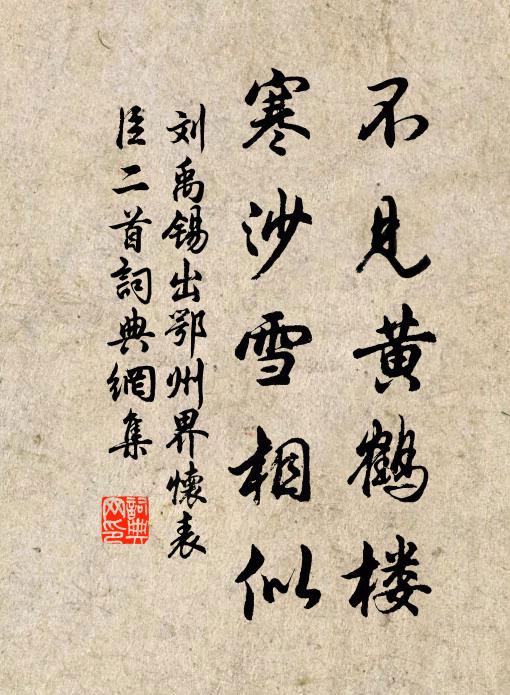 不见黄鹤楼
寒沙雪相似
刘禹锡出鄂州界怀表
臣二首詞典網集
詞典
网印